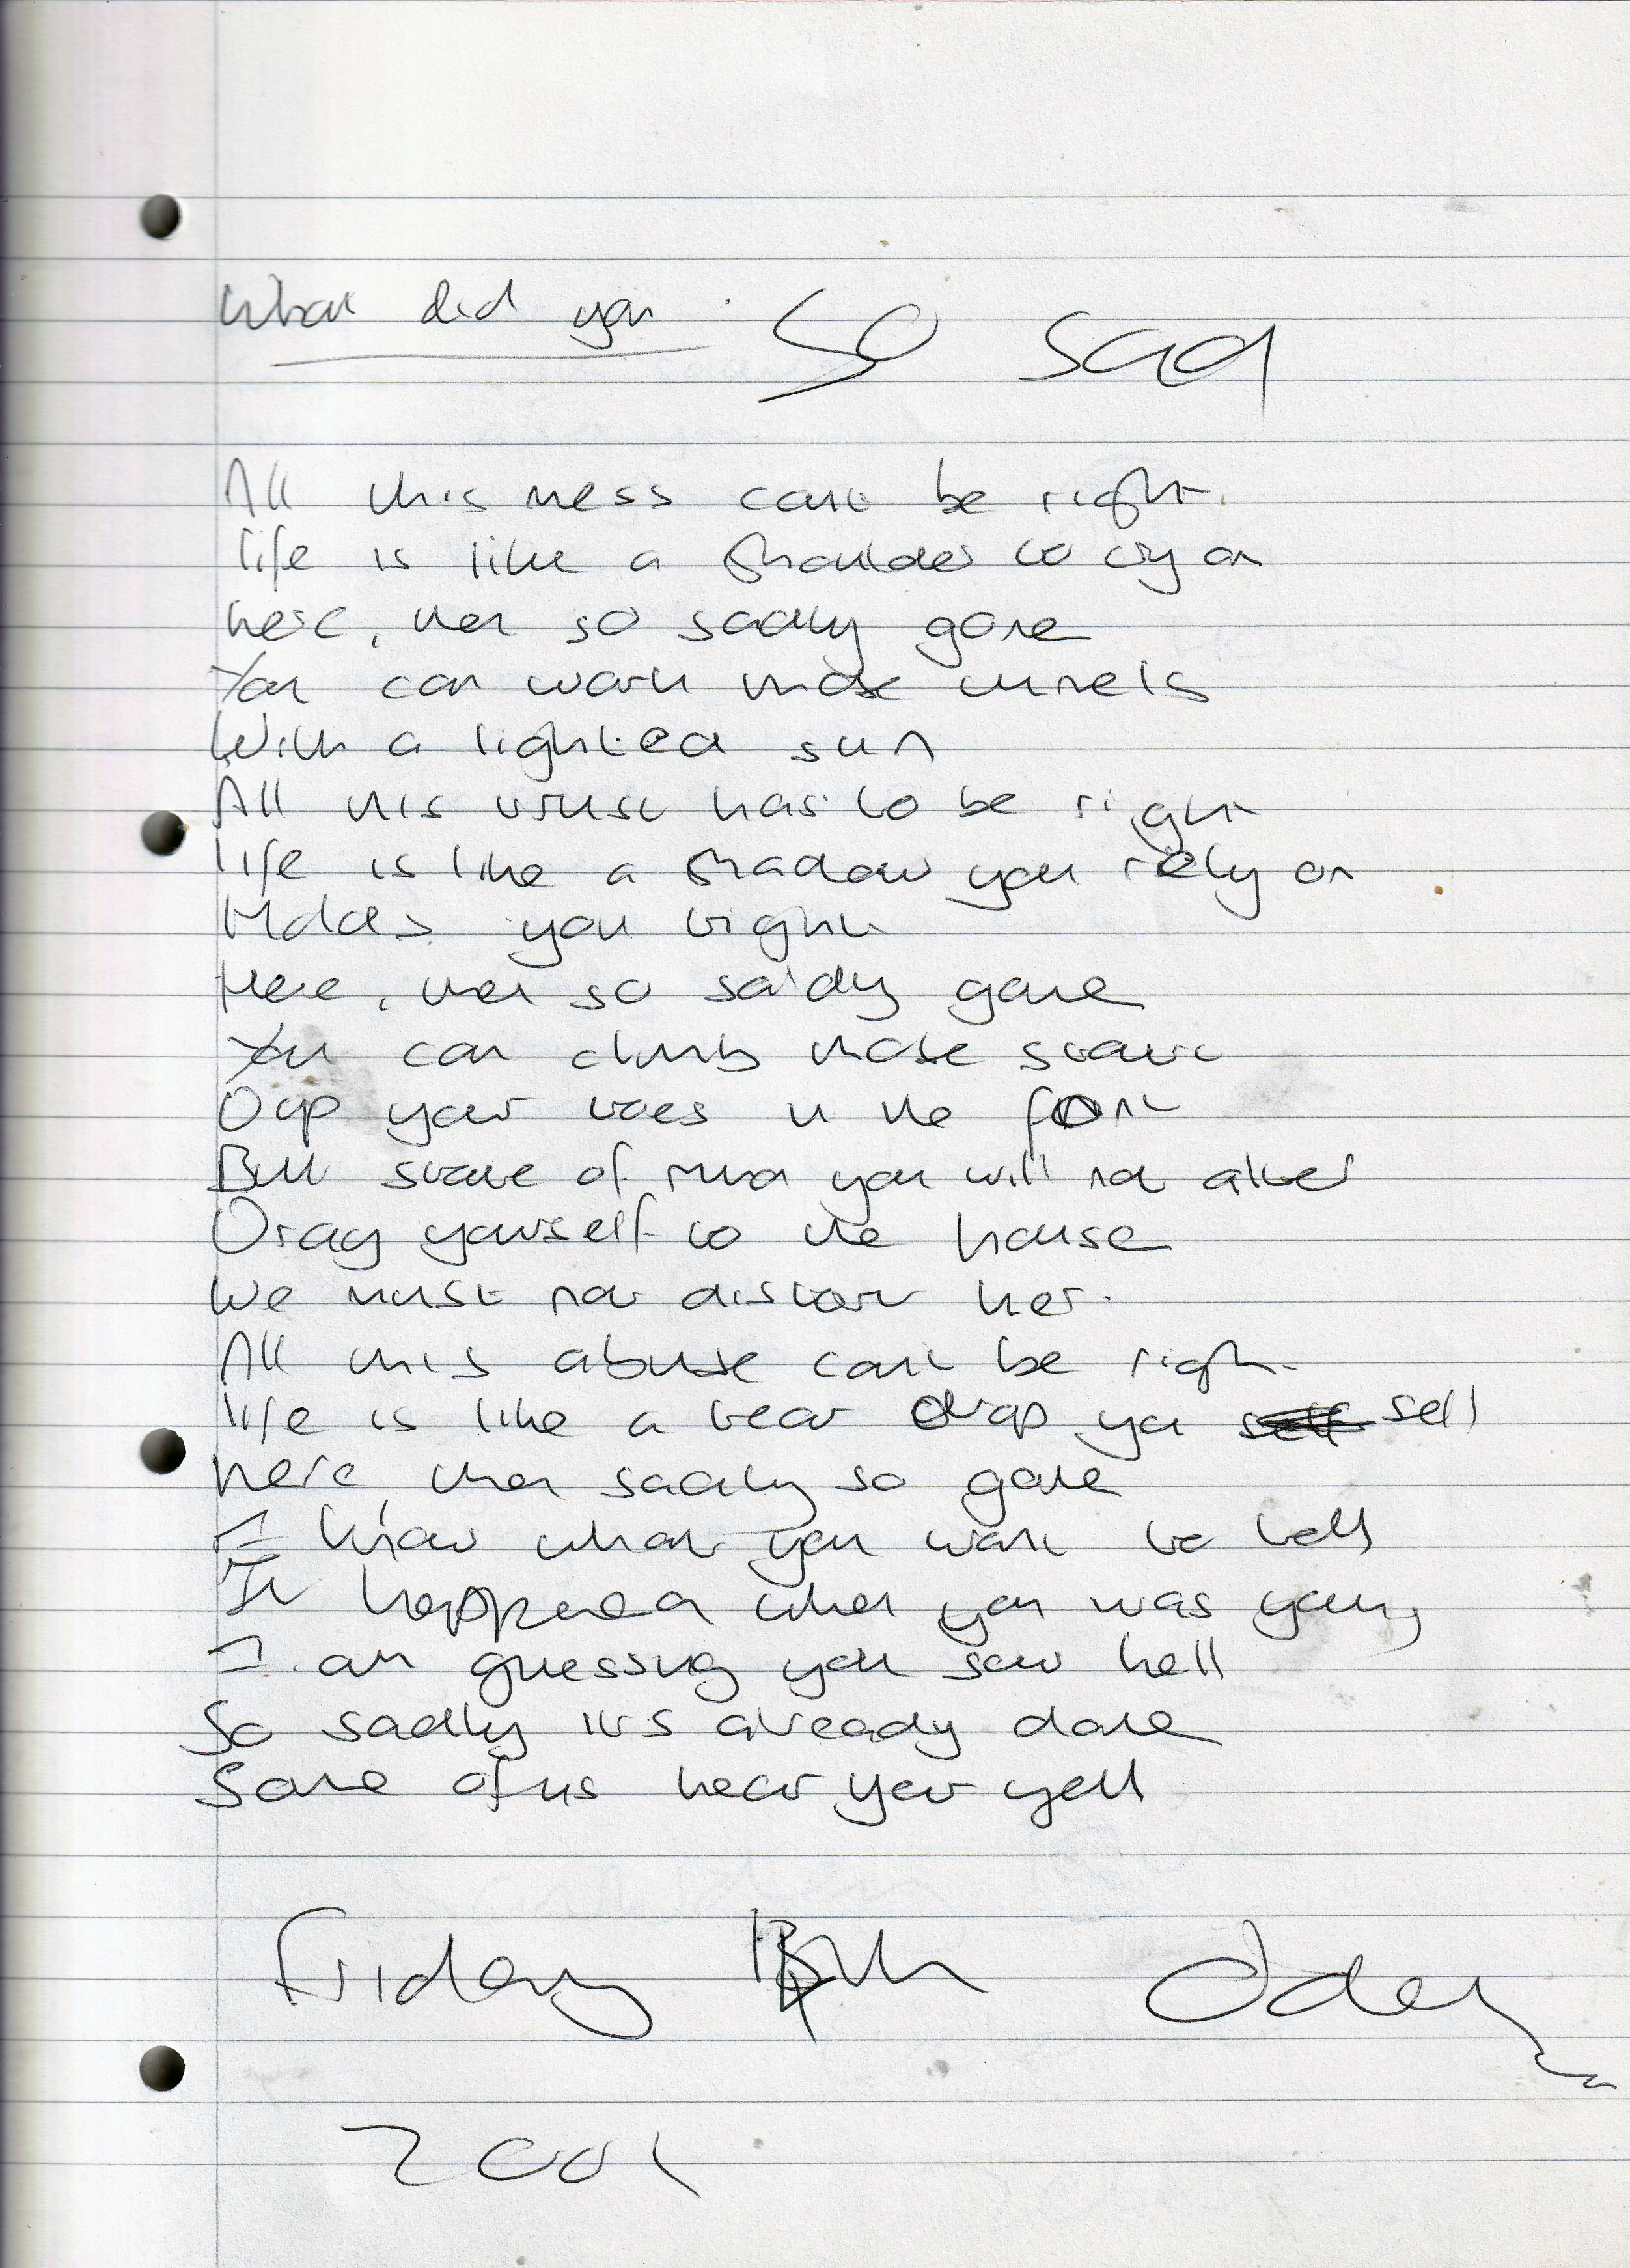 What did you
So Sad
All this mess cant be right.
life is like a shoulder to cry on
here, then so sadly gone
You can walk those tunnels
With a lighted sun
All this trust has to be right
life is like a shadow you rely on
Holds you tight
Here, then so sadly gone
You can climb those stairs
Dip your toes in the font
But state of mind you will not alter
Drag yourself to the house
We must not distort her.
All this abuse cant be right
life is like a tear drop you sell
here, then sadly so gone
I know what you want to tell
It happened when you was young
I am guessing you saw hell
So sadly its already done
Some of us hear your yell
Friday
2001